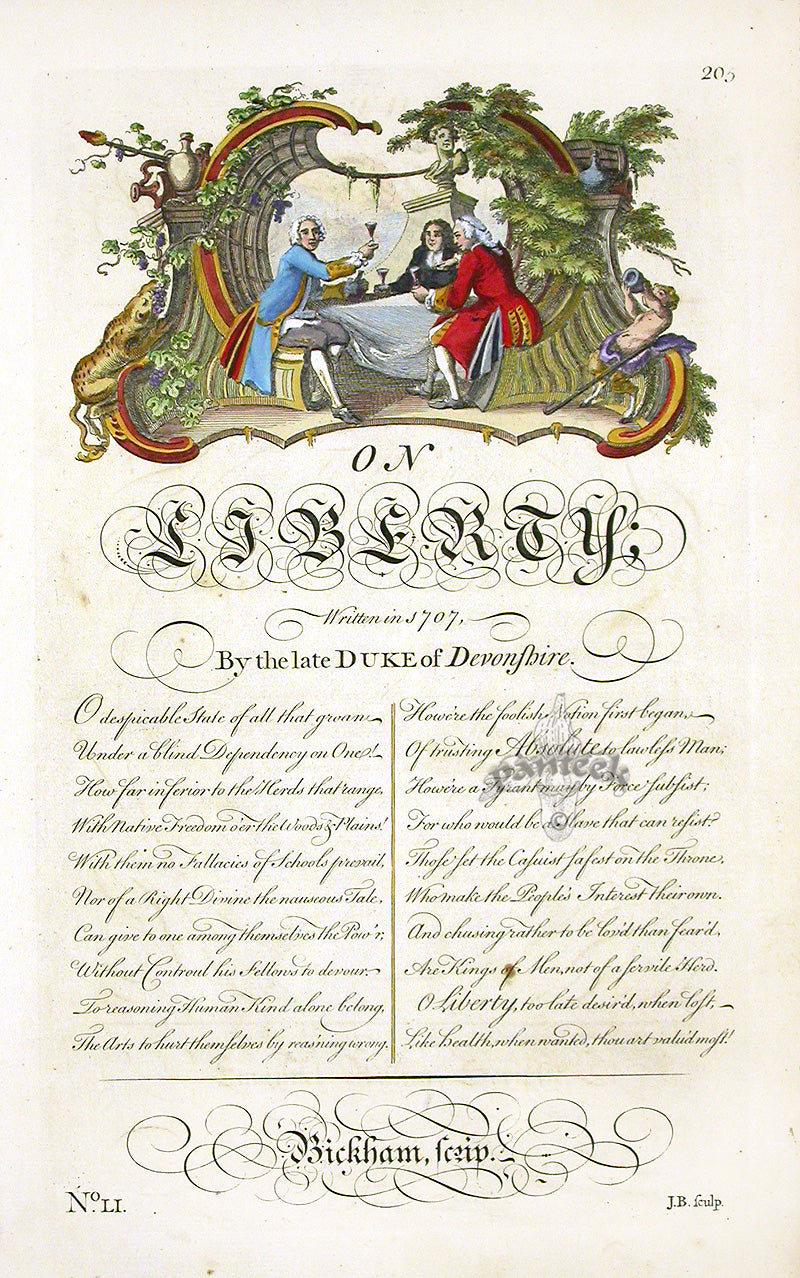 205
ON
LIBERTY;
Written in 1707,
By the late DUKE of Devonſhire.
O despicable State of all that groan
Under a blind Dependency on One!
How far inferior to the Herds that range,
With Native Freedom o'er the Woods & Plains!
With them no Fallacies of Schools prevail,
Nor of a Right Divine the nauseous Tale,
Can give to one among themselves the Pow'r,
Without Controul his Fellows to devour.
To reasoning Human Kind alone belong,
The Arts to hurt themſelves by reas'ning wrong.
Howe're the foolish Notion first began,
Of trusting Absolute to lawleſs Man;
Howe're a Tyrant may by Force ſubſist;
For who would be a Slave that can reſist?
Thoſe ſet the Caſuist ſafest on the Throne,
Who make the People's Interest their own.
And chusing rather to be lov'd than fear'd,
Are Kings of Men, not of a ſervile Herd.
O Liberty, too late desir'd, when loſt,
Like Health, when wanted, thou art valu'd moſt!
panteek
©
Bickham, ſcrip.
No. LI.
J.B. ſculp.